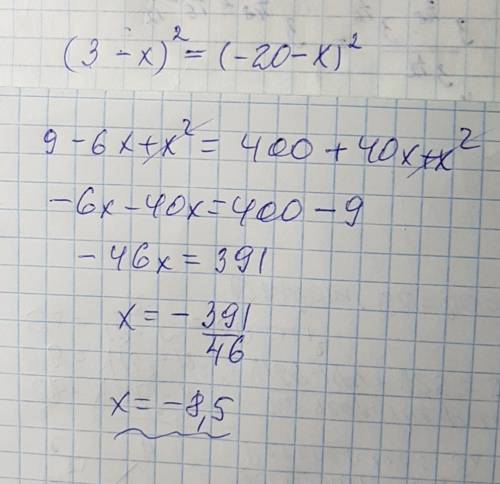 (3 - x)² = (-20 - x)²
9 - 6x + x² = 400 + 40x + x²
-6x - 40x = 400 - 9
-46x = 391
x = - 391/46
x = -8,5